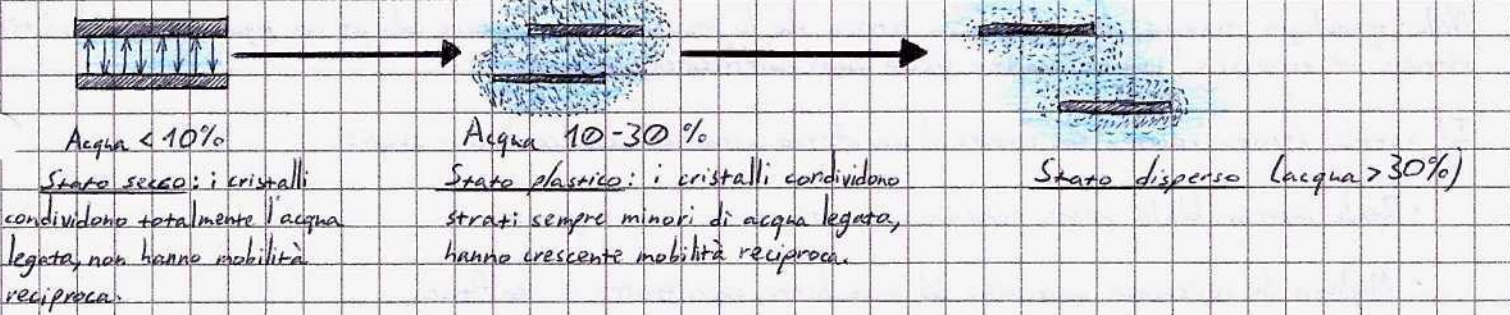 Acqua < 10%
Stato secco: i cristalli
condividono totalmente l'acqua
legata, non hanno mobilità
reciproca.
Acqua 10-30 %
Stato plastico: i cristalli condividono
strati sempre minori di acqua legata,
hanno crescente mobilità reciproca.
Stato disperso (acqua > 30%)